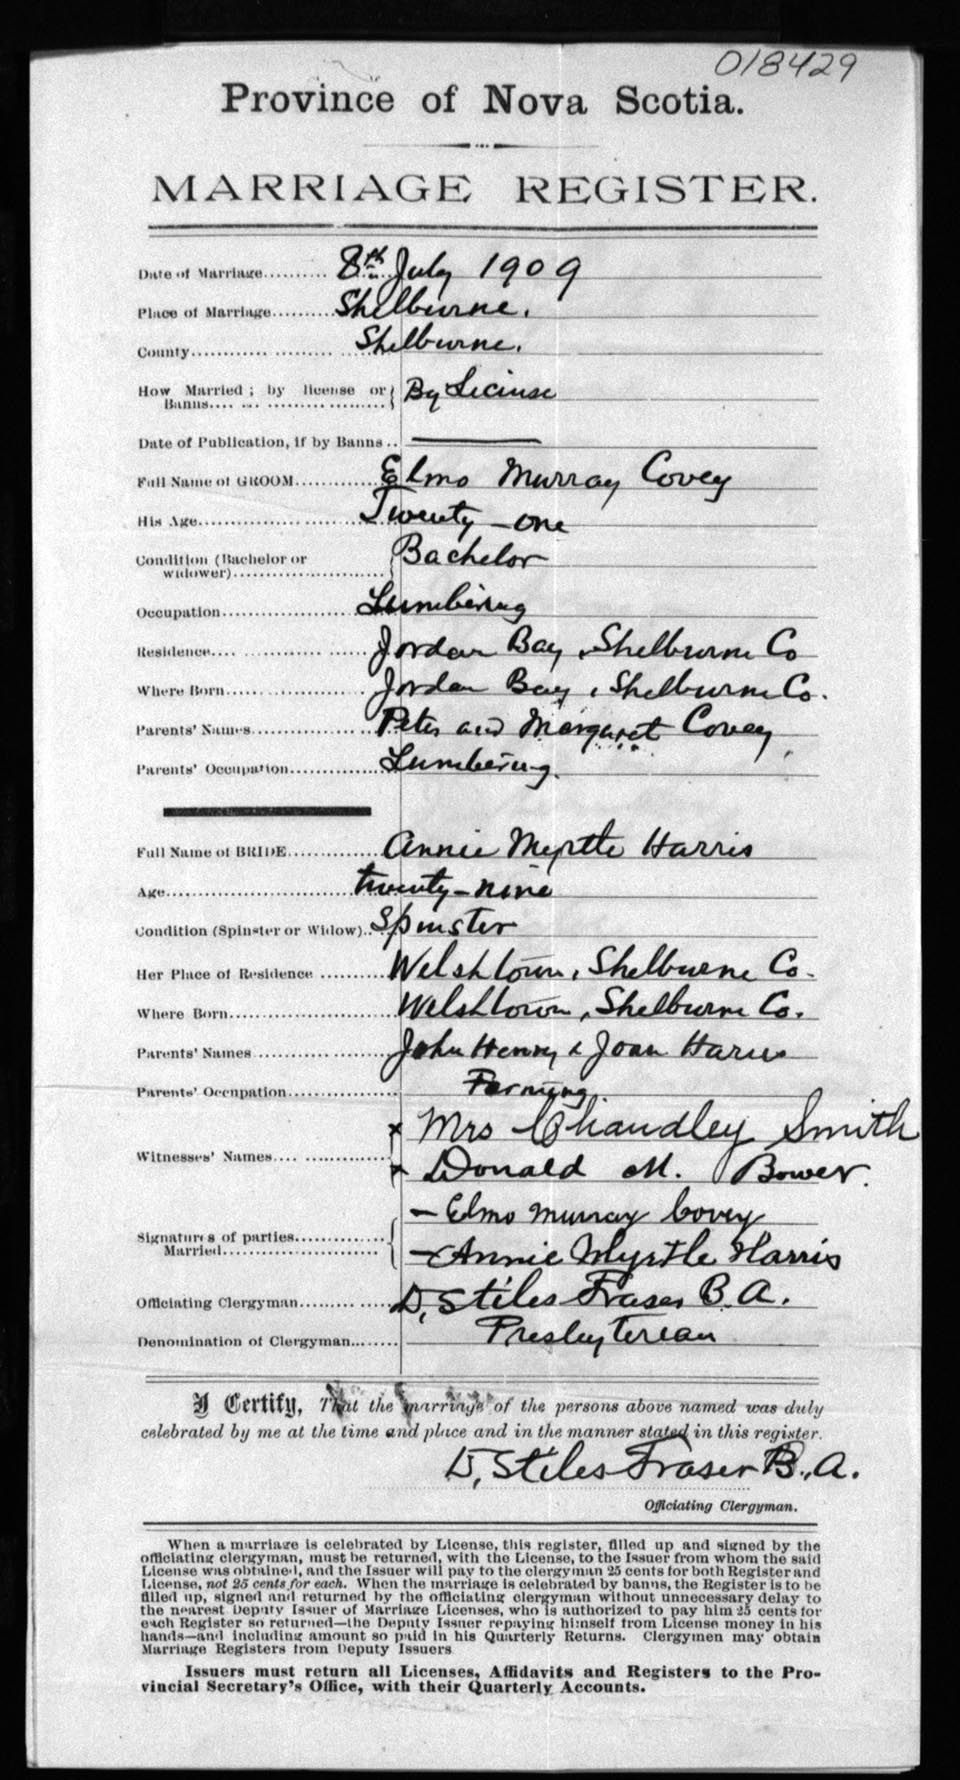 018429
Province of Nova Scotia.
MARRIAGE REGISTER.
Date of Marriage.......... 8th July 1909
Place of Marriage......... Shelburne.
County.................... Shelburne.
How Married ; by license or
Banns.... ... .................. By License
Date of Publication, if by Banns .. ———
Full Name of GROOM............ Elmo Murray Covey
His Age........................ Twenty-one
Condition (Bachelor or
widower)....................... Bachelor
Occupation..................... Lumbering
Residence.... ............. ...... Jordan Bay, Shelburne Co
Where Born.................... Jordan Bay, Shelburne Co.
Parents' Names................ Peter and Margaret Covey
Parents' Occupation............ Lumbering.
Full Name of BRIDE............ Annie Myrtle Harris
Age........................... twenty-nine
Condition (Spinster or Widow).. Spinster
Her Place of Residence ......... Welshtown, Shelburne Co.
Where Born.................... Welshtown, Shelburne Co.
Parents' Names ................ John Henry & Joan Harris
Parents' Occupation............ Farming.
x Mrs Chandley Smith
Witnesses' Names.... ............
x Donald M. Bower.
— Elmo Murray Covey
Signatures of parties.............
Married........................ — Annie Myrtle Harris
Officiating Clergyman......... ..... D. Stiles Fraser B.A.
Denomination of Clergyman........ Presbyterian
I Certify, That the marriage of the persons above named was duly
celebrated by me at the time and place and in the manner stated in this register.
D. Stiles Fraser B.A.
Officiating Clergyman.
When a marriage is celebrated by License, this register, filled up and signed by the
officiating clergyman, must be returned, with the License, to the Issuer from whom the said
License was obtained, and the Issuer will pay to the clergyman 25 cents for both Register and
License, not 25 cents for each. When the marriage is celebrated by banns, the Register is to be
filled up, signed and returned by the officiating clergyman without unnecessary delay to
the nearest Deputy Issuer of Marriage Licenses, who is authorized to pay him 25 cents for
each Register so returned—the Deputy Issuer repaying himself from License money in his
hands—and including amount so paid in his Quarterly Returns. Clergymen may obtain
Marriage Registers from Deputy Issuers
Issuers must return all Licenses, Affidavits and Registers to the Pro-
vincial Secretary's Office, with their Quarterly Accounts.